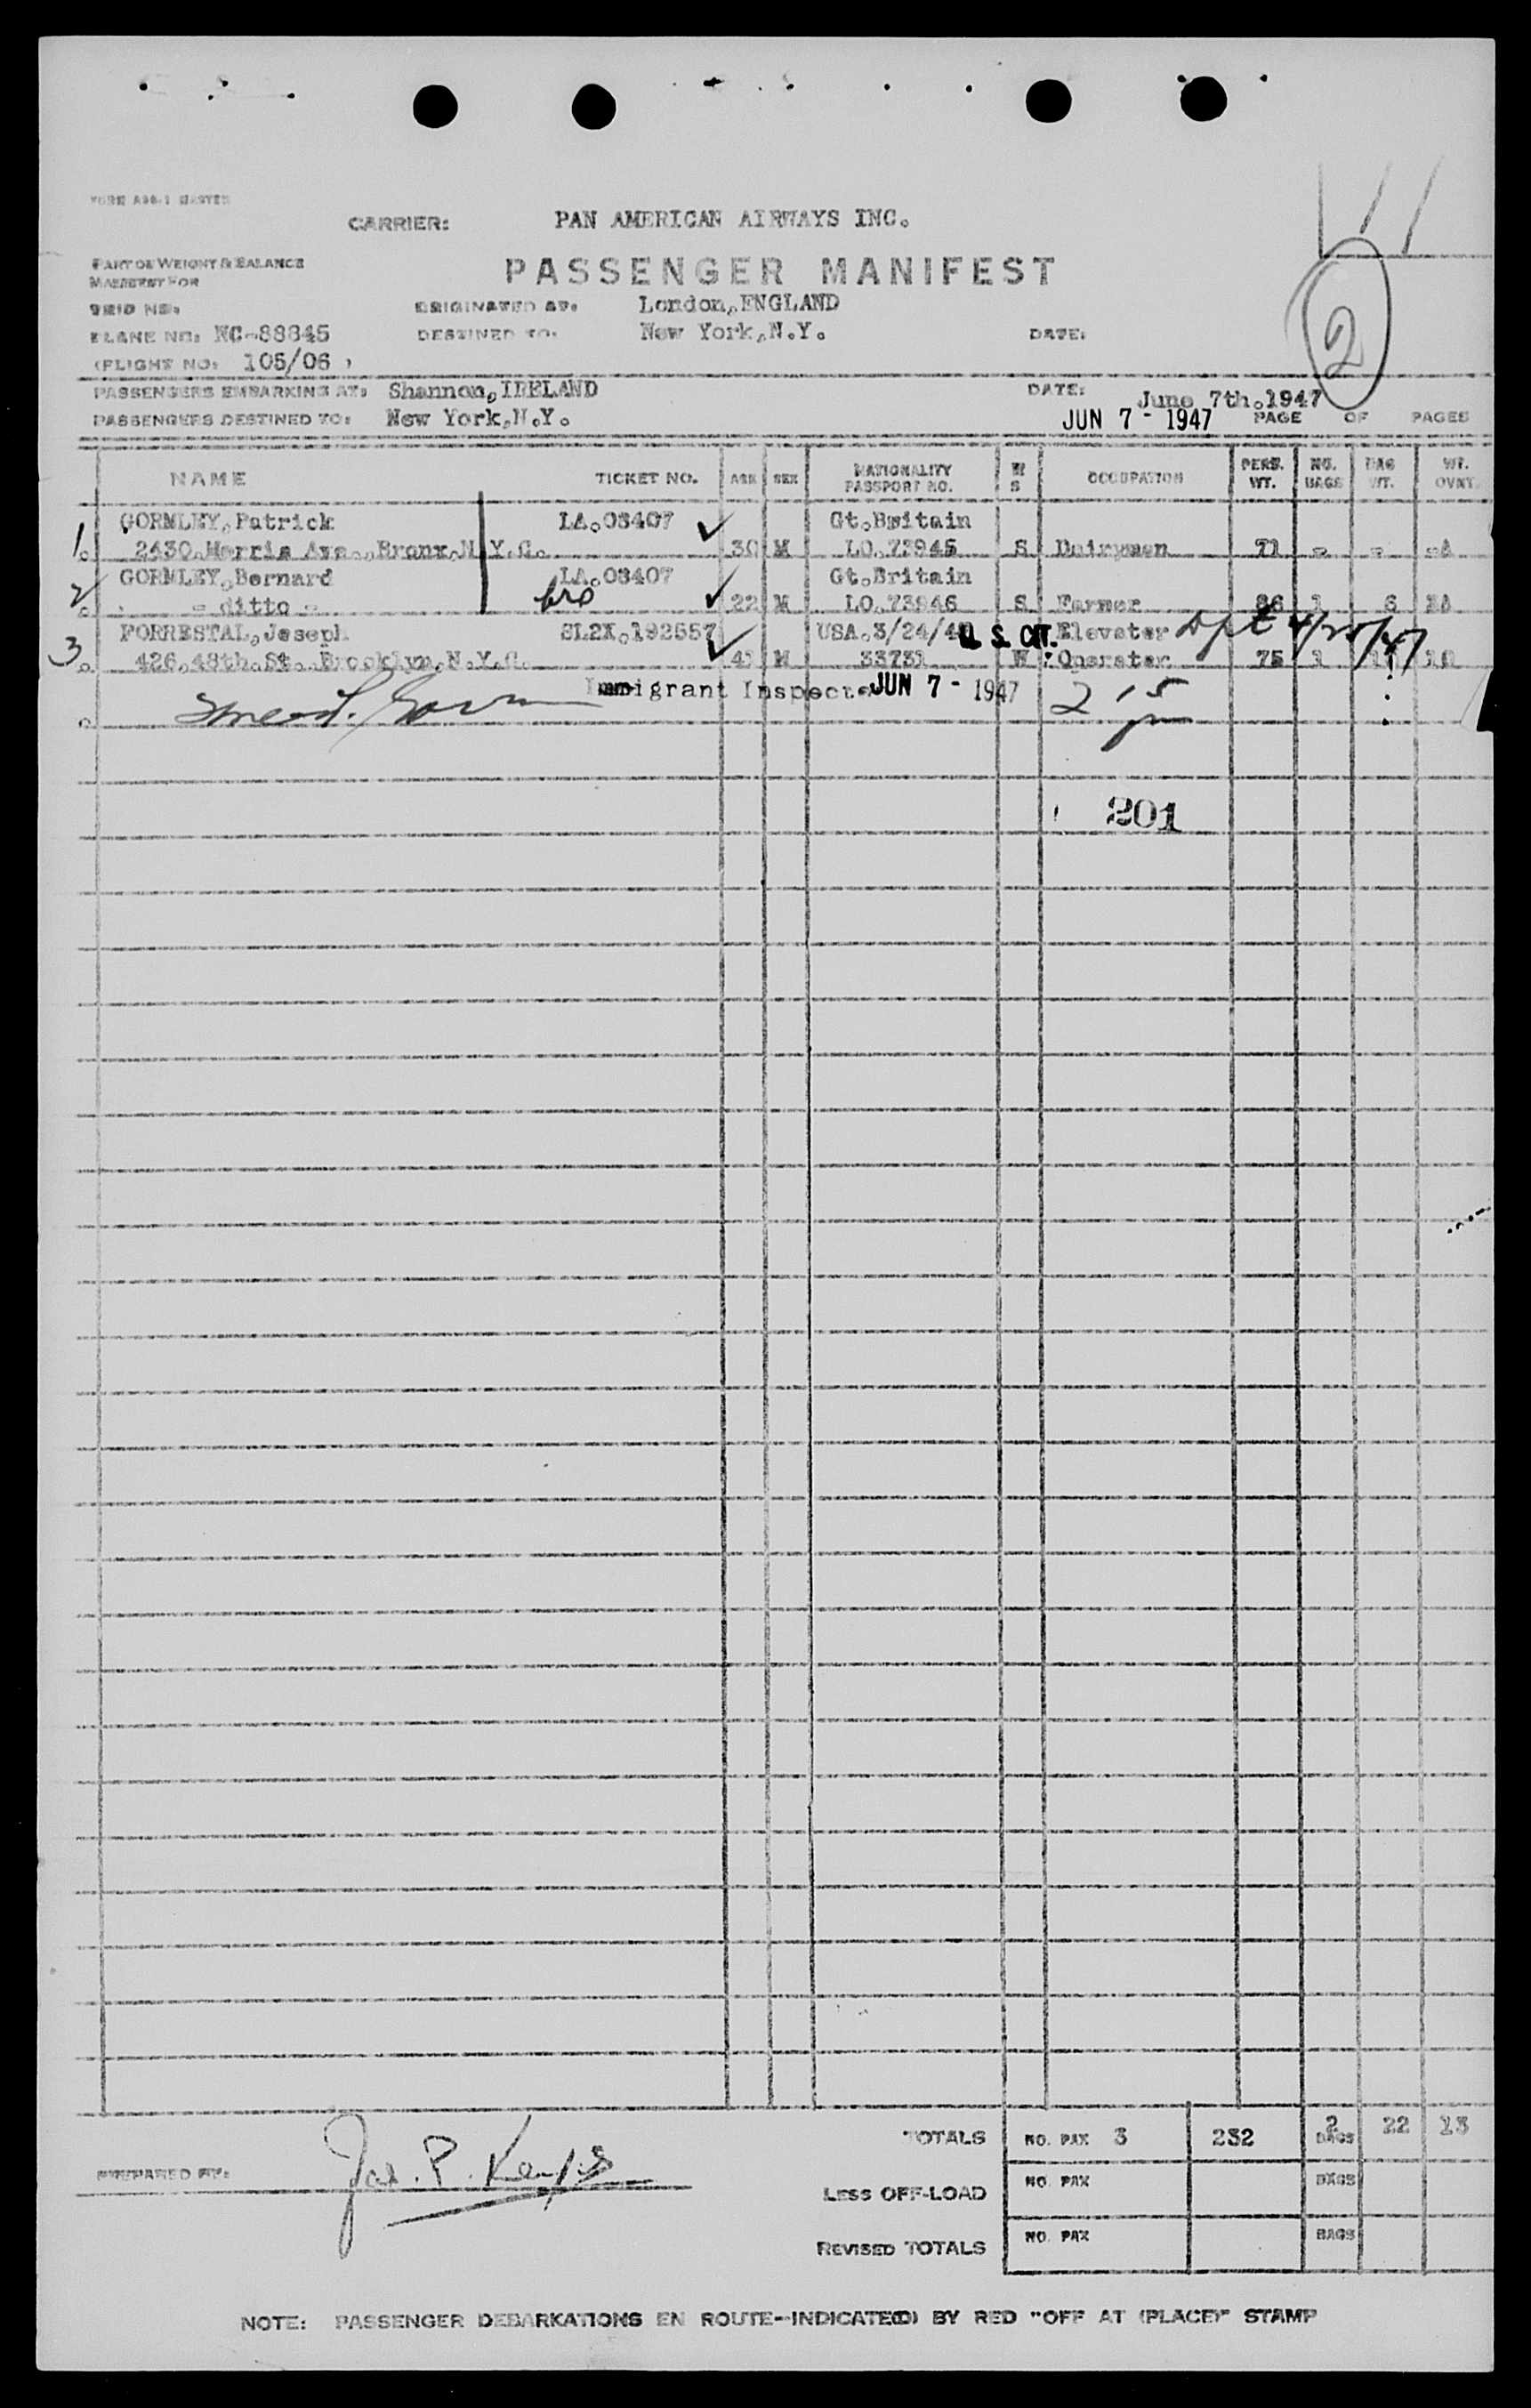 CARRIER: PAN AMERICAN AIRWAYS INC.
PART OF WEIGHT & BALANCE
MANIFEST FOR
PASSENGER MANIFEST
TRIP NO. ORIGINATED AT: London, ENGLAND
PLANE NO: NC-88845 DESTINED TO: New York, N.Y. DATE:
(FLIGHT NO: 105/06 )
2
PASSENGERS EMBARKING AT: Shannon, IRELAND DATE: June 7th. 1947
PASSENGERS DESTINED TO: New York, N.Y. JUN 7 - 1947 PAGE OF PAGES
NAME TICKET NO. AGE SEX NATIONALITY PASSPORT NO. M S OCCUPATION PERS. WT. NO. BAGS BAG WT. WT. OVNT.
1. GORMLEY, Patrick LA.03407 Gt. Britain
2430 Morris Ave., Bronx, N.Y.C. 30 M LO.73945 S Dairyman 71 - -
2. GORMLEY, Bernard LA.03407 Gt. Britain
- ditto - bro 22 M LO.73946 S Farmer 86 1 6
3. FORRESTAL, Joseph SL2X.192557 USA. 3/24/4 U.S. CIT. Elevator Dpt 4/25/47
426, 48th. St. Brooklyn, N.Y.C. 41 M 33731 W Operator 75 1
Immigrant Inspector JUN 7 - 1947
201
TOTALS NO. PAX 3 232 2 BAGS 22 13
PREPARED BY: Jas. P.
LESS OFF-LOAD NO. PAX BAGS
REVISED TOTALS NO. PAX BAGS
NOTE: PASSENGER DEBARKATIONS EN ROUTE--INDICATE(D) BY RED "OFF AT (PLACE)" STAMP